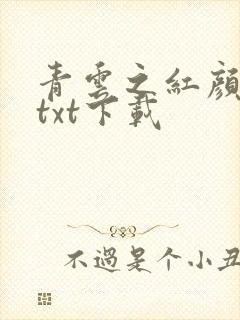 青雲之紅顔
txt下載
不過是个小丑